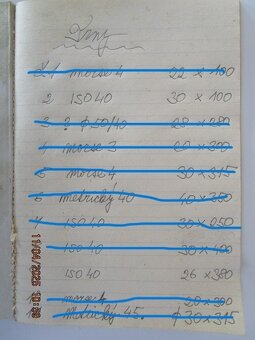 Trny
č.1 morse 4 22 x 100
2 ISO 40 30 x 100
3 ? ϕ 50/40 28 x 280
4 morse 3 20 x 300
5 morse 4 30 x 315
6 metrický 40 40 x 350
7 ISO 40 30 x 050
ISO 40 30 x 400
ISO 40 26 x 380
morse 4 28 x 300
Metrický 45. ϕ 30 x 315
11/04/2025